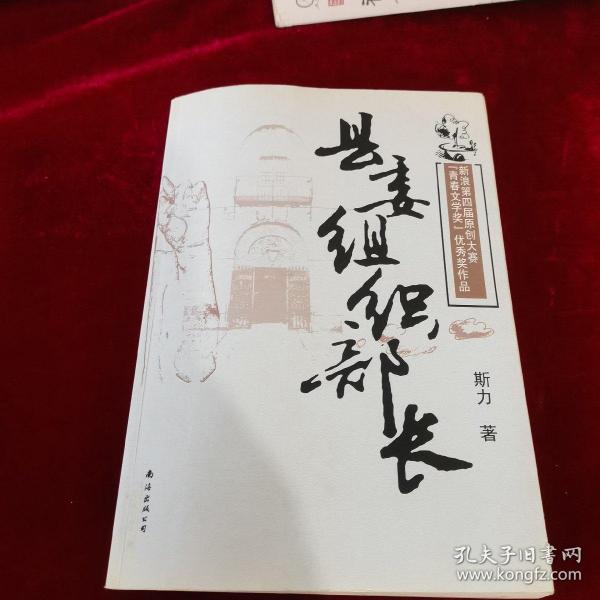 县委组织部长
新浪第四届原创大赛
“青春文学奖”优秀奖作品
斯力 著
南海出版公司
孔夫子旧书网
www.kongfz.com